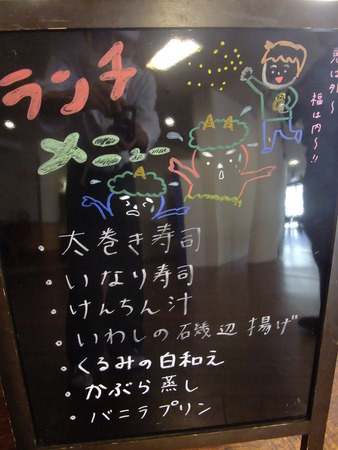 鬼は外〜
福は内〜!!
ランチ
メニュー
・太巻き寿司
・いなり寿司
・けんちん汁
・いわしの磯辺揚げ
・くるみの白和え
・かぶら蒸し
・バニラプリン